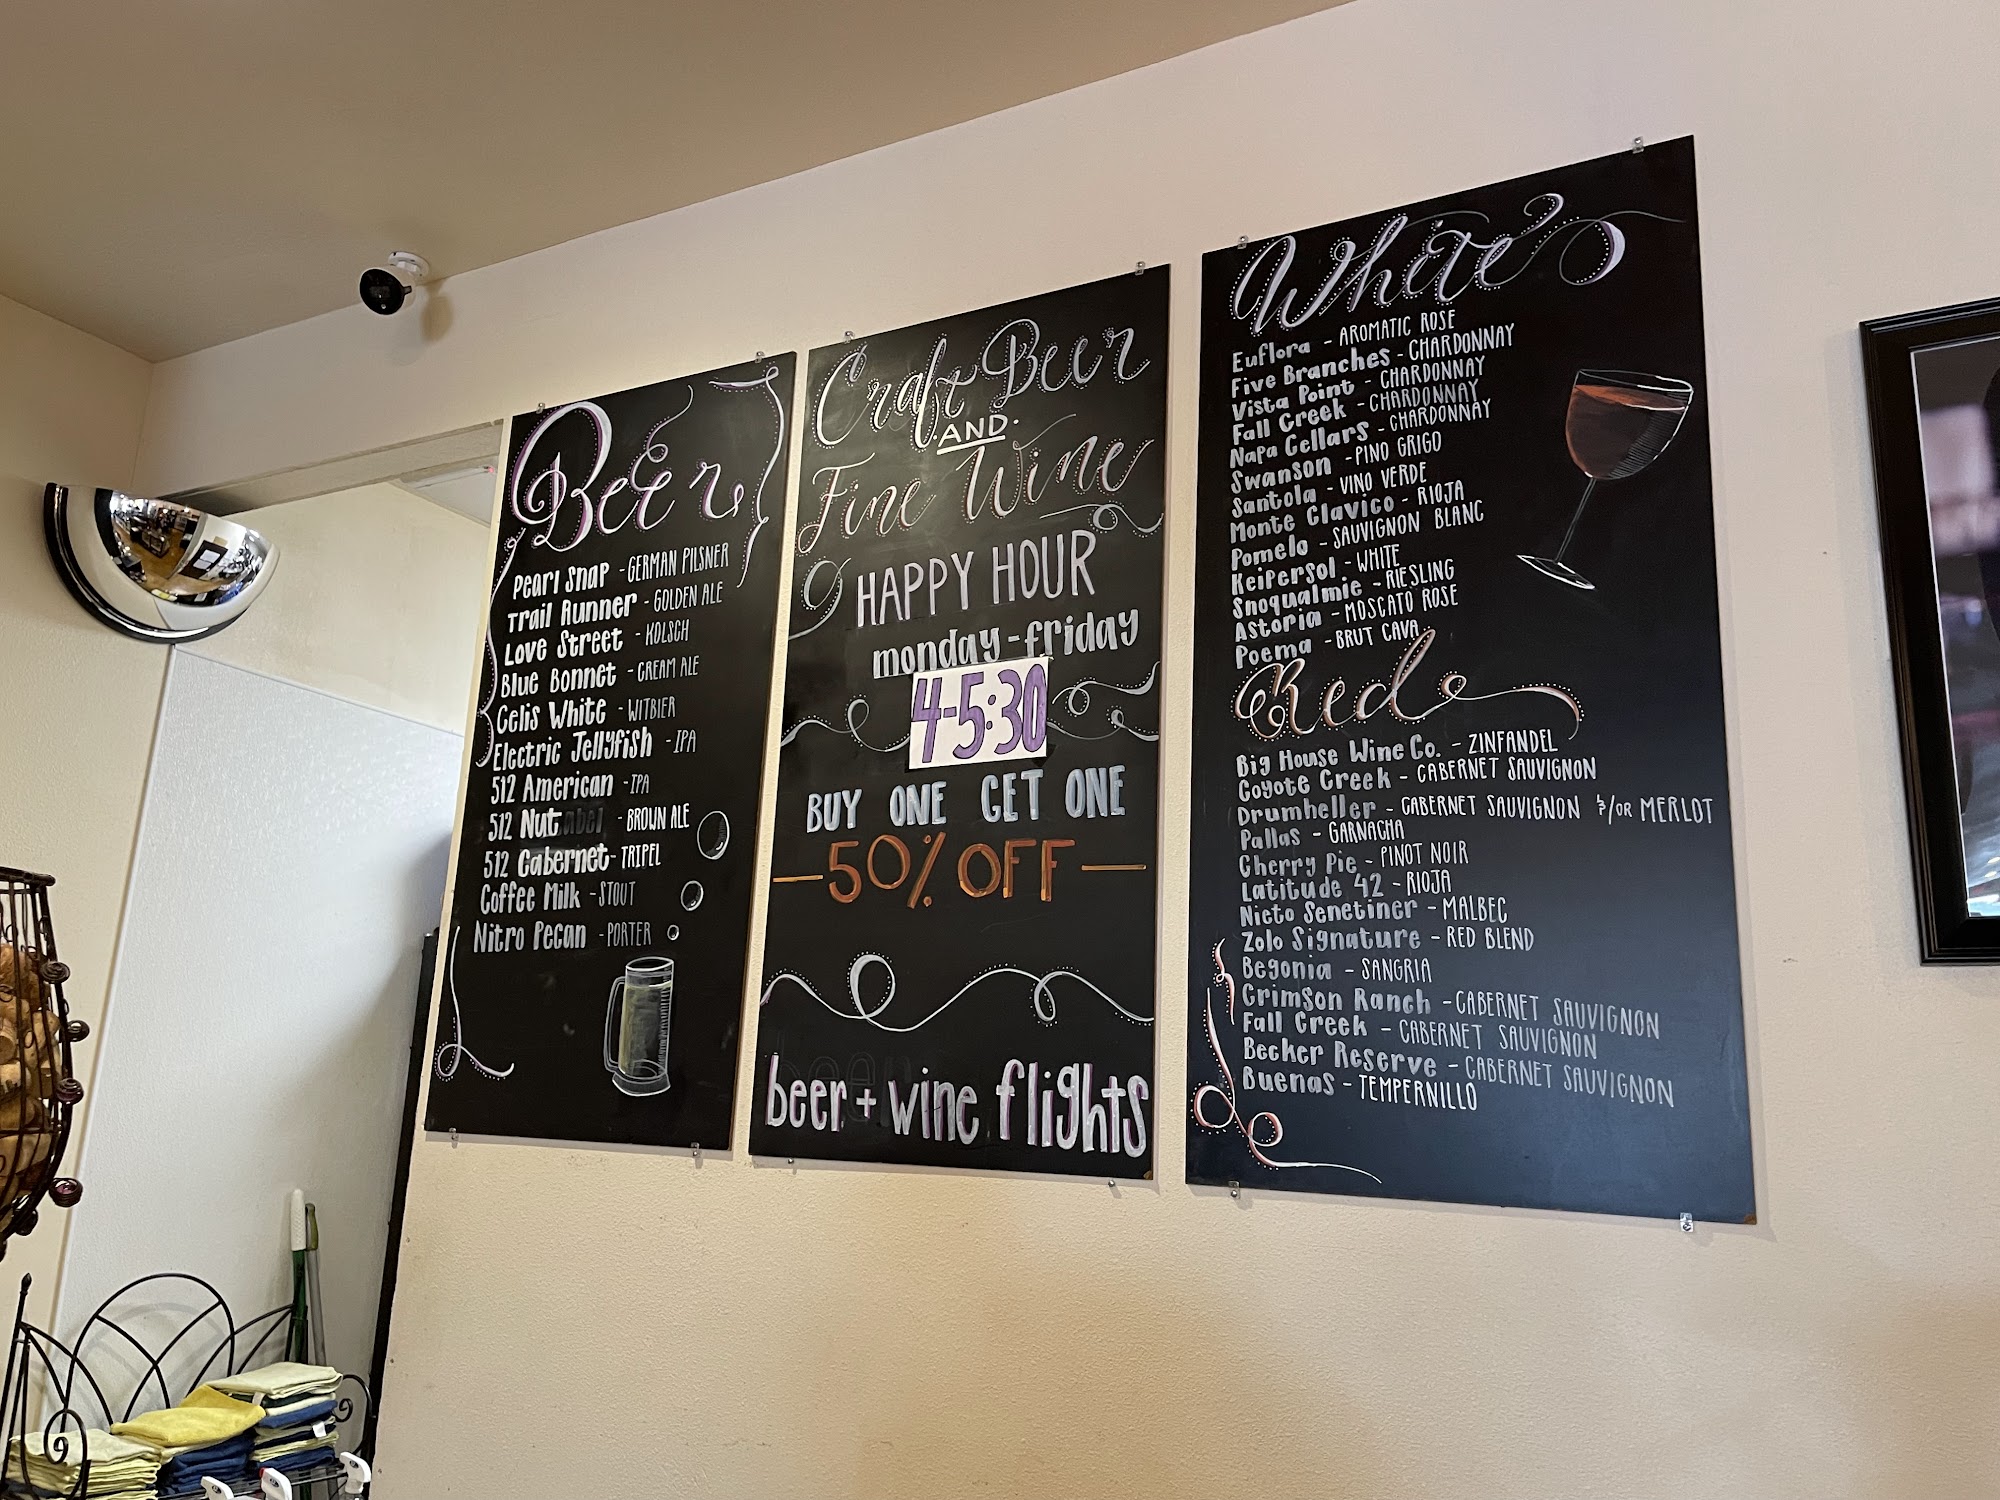 Beer
Pearl Snap - GERMAN PILSNER
Trail Runner - GOLDEN ALE
Love Street - KOLSCH
Blue Bonnet - CREAM ALE
Celis White - WITBIER
Electric Jellyfish - IPA
512 American - IPA
512 Nut - BROWN ALE
512 Cabernet - TRIPEL
Coffee Milk - STOUT
Nitro Pecan - PORTER
Craft Beer
·AND·
Fine Wine
HAPPY HOUR
monday-friday
4-5:30
BUY ONE GET ONE
-50% OFF-
beer + wine flights
White
Euflora - AROMATIC ROSE
Five Branches - CHARDONNAY
Vista Point - CHARDONNAY
Fall Creek - CHARDONNAY
Napa Cellars - CHARDONNAY
Swanson - PINO GRIGO
Santola - VINO VERDE
Monte Clavico - RIOJA
Pomelo - SAUVIGNON BLANC
Keipersol - WHITE
Snoqualmie - RIESLING
Astoria - MOSCATO ROSE
Poema - BRUT CAVA
Red
Big House Wine Co. - ZINFANDEL
Coyote Creek - CABERNET SAUVIGNON
Drumheller - CABERNET SAUVIGNON &/OR MERLOT
Pallas - GARNACHA
Cherry Pie - PINOT NOIR
Latitude 42 - RIOJA
Nieto Senetiner - MALBEC
Zolo Signature - RED BLEND
Begonia - SANGRIA
Crimson Ranch - CABERNET SAUVIGNON
Fall Creek - CABERNET SAUVIGNON
Becker Reserve - CABERNET SAUVIGNON
Buenas - TEMPERNILLO